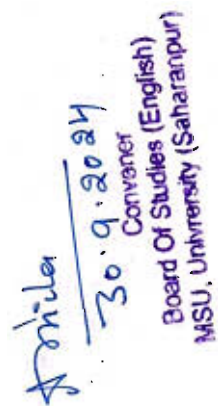 30.9.2024
Convener
Board Of Studies (English)
MSU, Univrersity (Saharanpur)